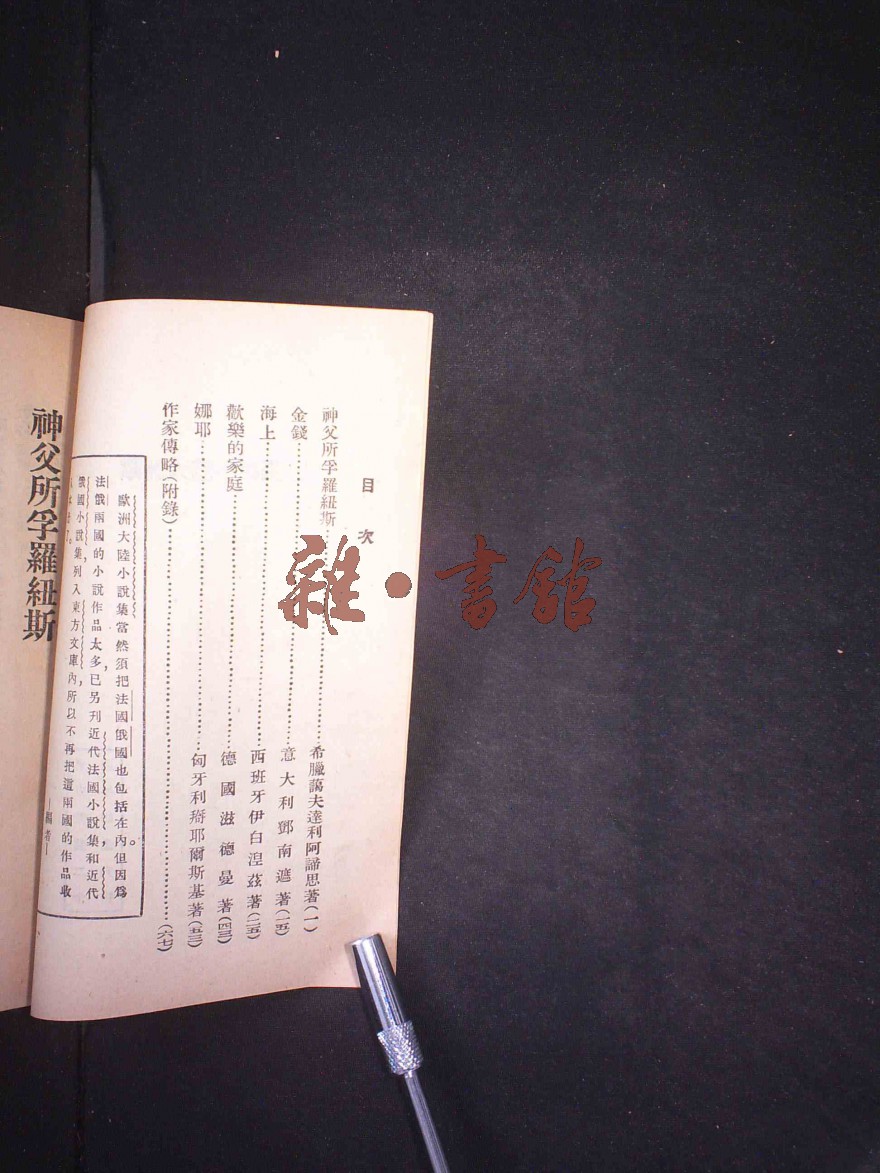 目次
神父所孚羅紐斯……希臘藹夫達利阿諦思著(一)
金錢……意大利鄧南遮著(一五)
海上……西班牙伊白湼茲著(二五)
歡樂的家庭……德國滋德曼著(四三)
娜耶……匈牙利䅿耶爾斯基著(五三)
作家傳略(附錄)……(六七)
歐洲大陸小說集當然須把法國俄國也包括在內。但因爲
法俄兩國的小說作品太多,已另刊近代法國小說集,和近代
俄國小說集,列入東方文庫內,所以不再把這兩國的作品收
—編者—
神父所孚羅紐斯
雜·書館